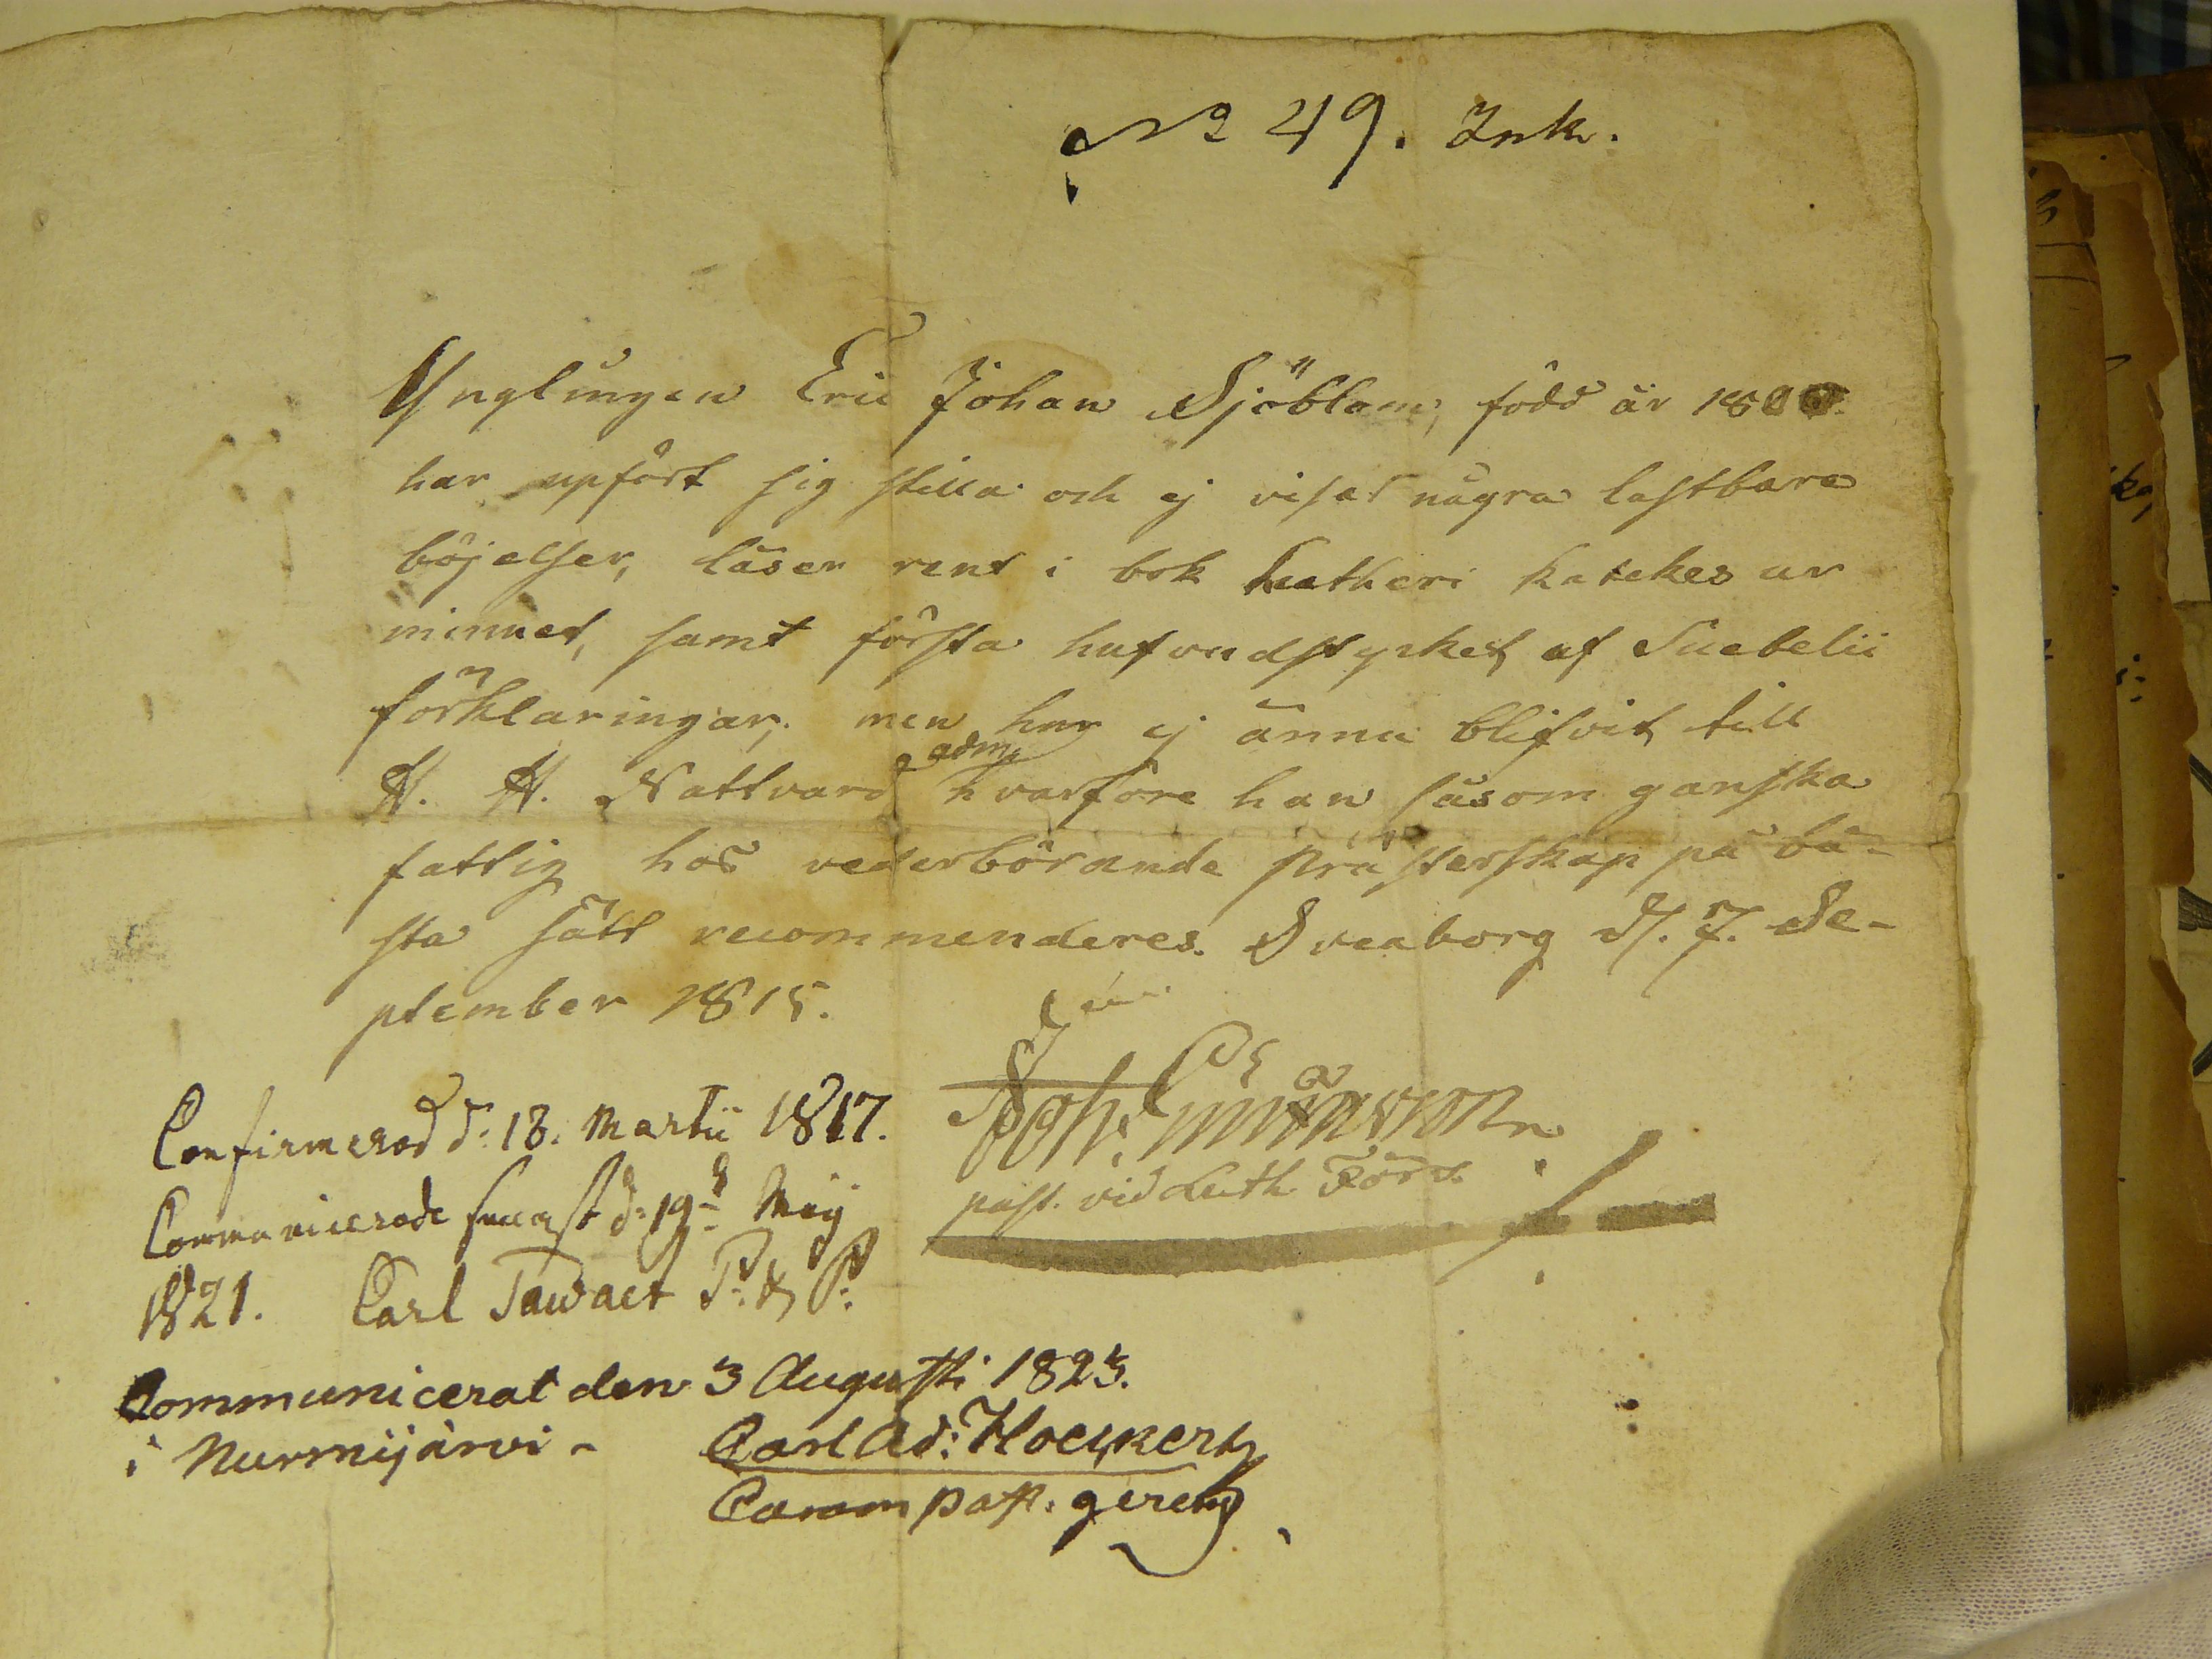 No 49. Ink.
Ynglingen Eric Johan Sjöblom, född år 1800
har upfört sig stilla och ej visat några lastbara
böjelser, läser rent i bok Lutheri Katekes ur
minnet, samt första hufvudstycket af Suebelii
förklaringar; men har ej ännu blifvit till
H. H. Nattvard adm. hvarföre han såsom ganska
fattig hos vederbörande Prästerskap på bä-
sta sätt recommenderes. Sveaborg d. 7. Se-
ptember 1815.
Joh.
past. vid Luth. Förs.
Confirmerad d: 18. Martii 1817.
Communicerade senast d: 19de Maij
1821. Carl Tawast P: & P:
Communicerat den 3 Augusti 1823.
i Nurmijärvi - Carl Ad: Hoeckert
Comm past. gerens